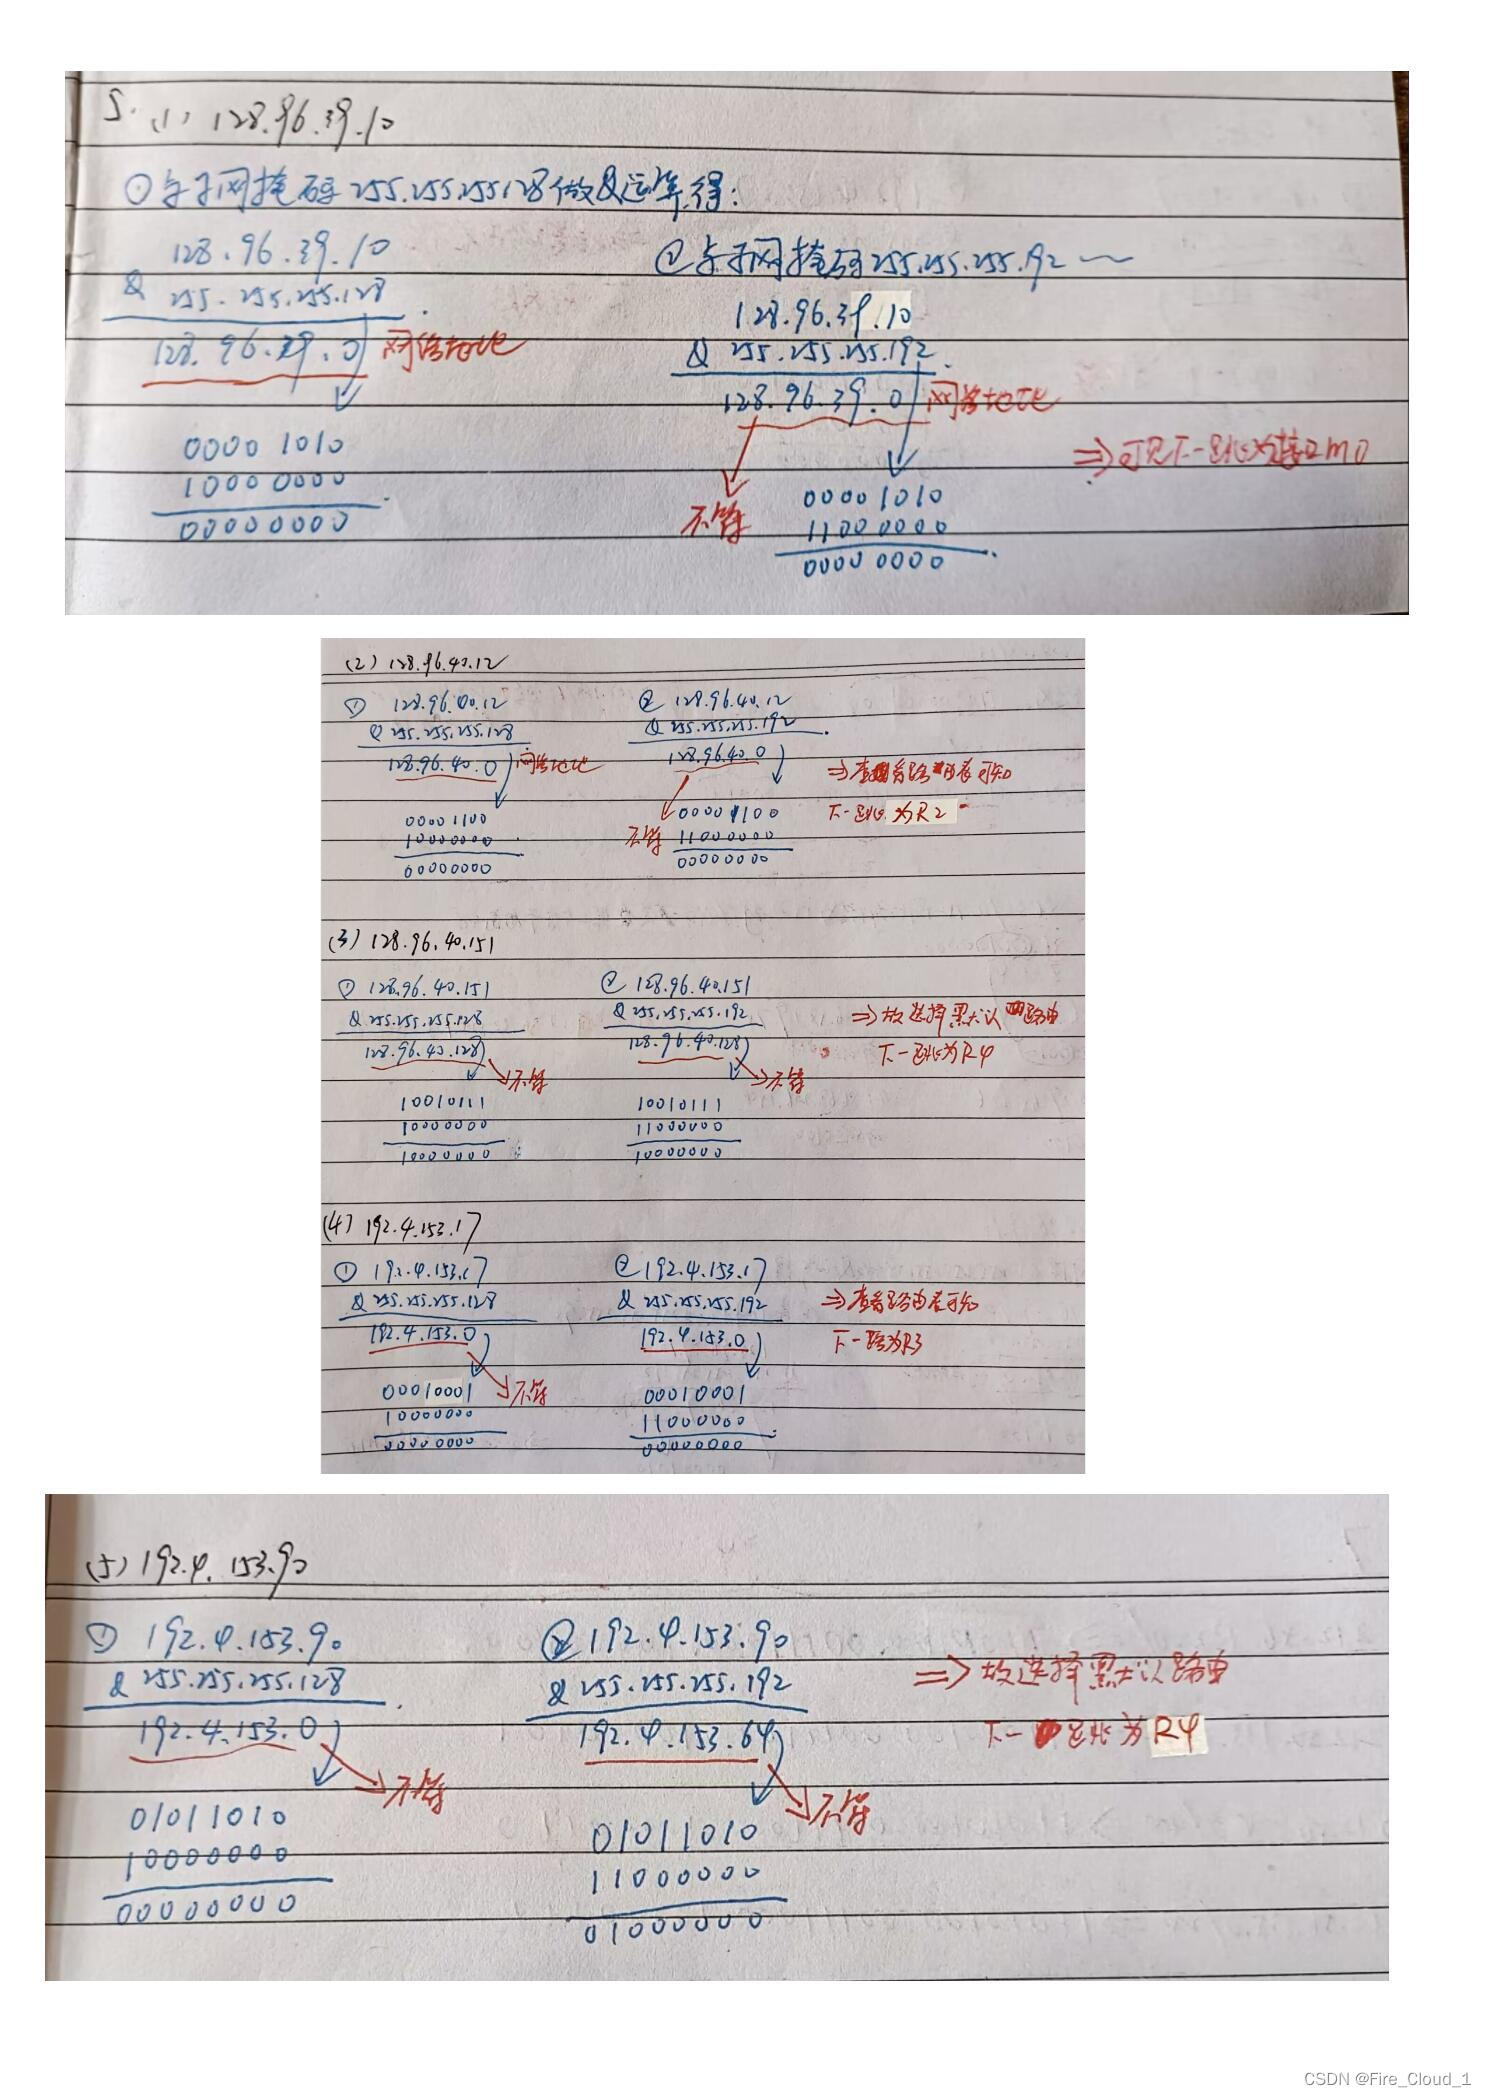 5. (1) 128.96.39.10
① 与子网掩码 255.255.255.128做&运算,得:
128.96.39.10
& 255.255.255.128
128.96.39.0 网络地址
0000 1010
1000 0000
00000000
② 与子网掩码 255.255.255.192 ~
128.96.39.10
& 255.255.255.192
128.96.39.0 网络地址
不等
0000 1010
1100 0000
0000 0000
=> 可见下一跳为接口m0
(2) 128.96.40.12
① 128.96.40.12
& 255.255.255.128
128.96.40.0 网络地址
00001100
10000000
00000000
② 128.96.40.12
& 255.255.255.192
128.96.40.0
不等
00001100
11000000
00000000
=> 查看路由表可知
下一跳为R2
(3) 128.96.40.151
① 128.96.40.151
& 255.255.255.128
128.96.40.128
不等
10010111
10000000
10000000
② 128.96.40.151
& 255.255.255.192
128.96.40.128
不等
10010111
11000000
10000000
=> 故选择默认路由
下一跳为R4
(4) 192.4.153.17
① 192.4.153.17
& 255.255.255.128
192.4.153.0
不等
00010001
10000000
00000000
② 192.4.153.17
& 255.255.255.192
192.4.153.0
00010001
11000000
00000000
=> 查看路由表可知
下一跳为R3
(5) 192.4.153.90
① 192.4.153.90
& 255.255.255.128
192.4.153.0
不等
01011010
10000000
00000000
② 192.4.153.90
& 255.255.255.192
192.4.153.64
不等
01011010
11000000
01000000
=> 故选择默认路由
下一跳为R4
CSDN @Fire_Cloud_1